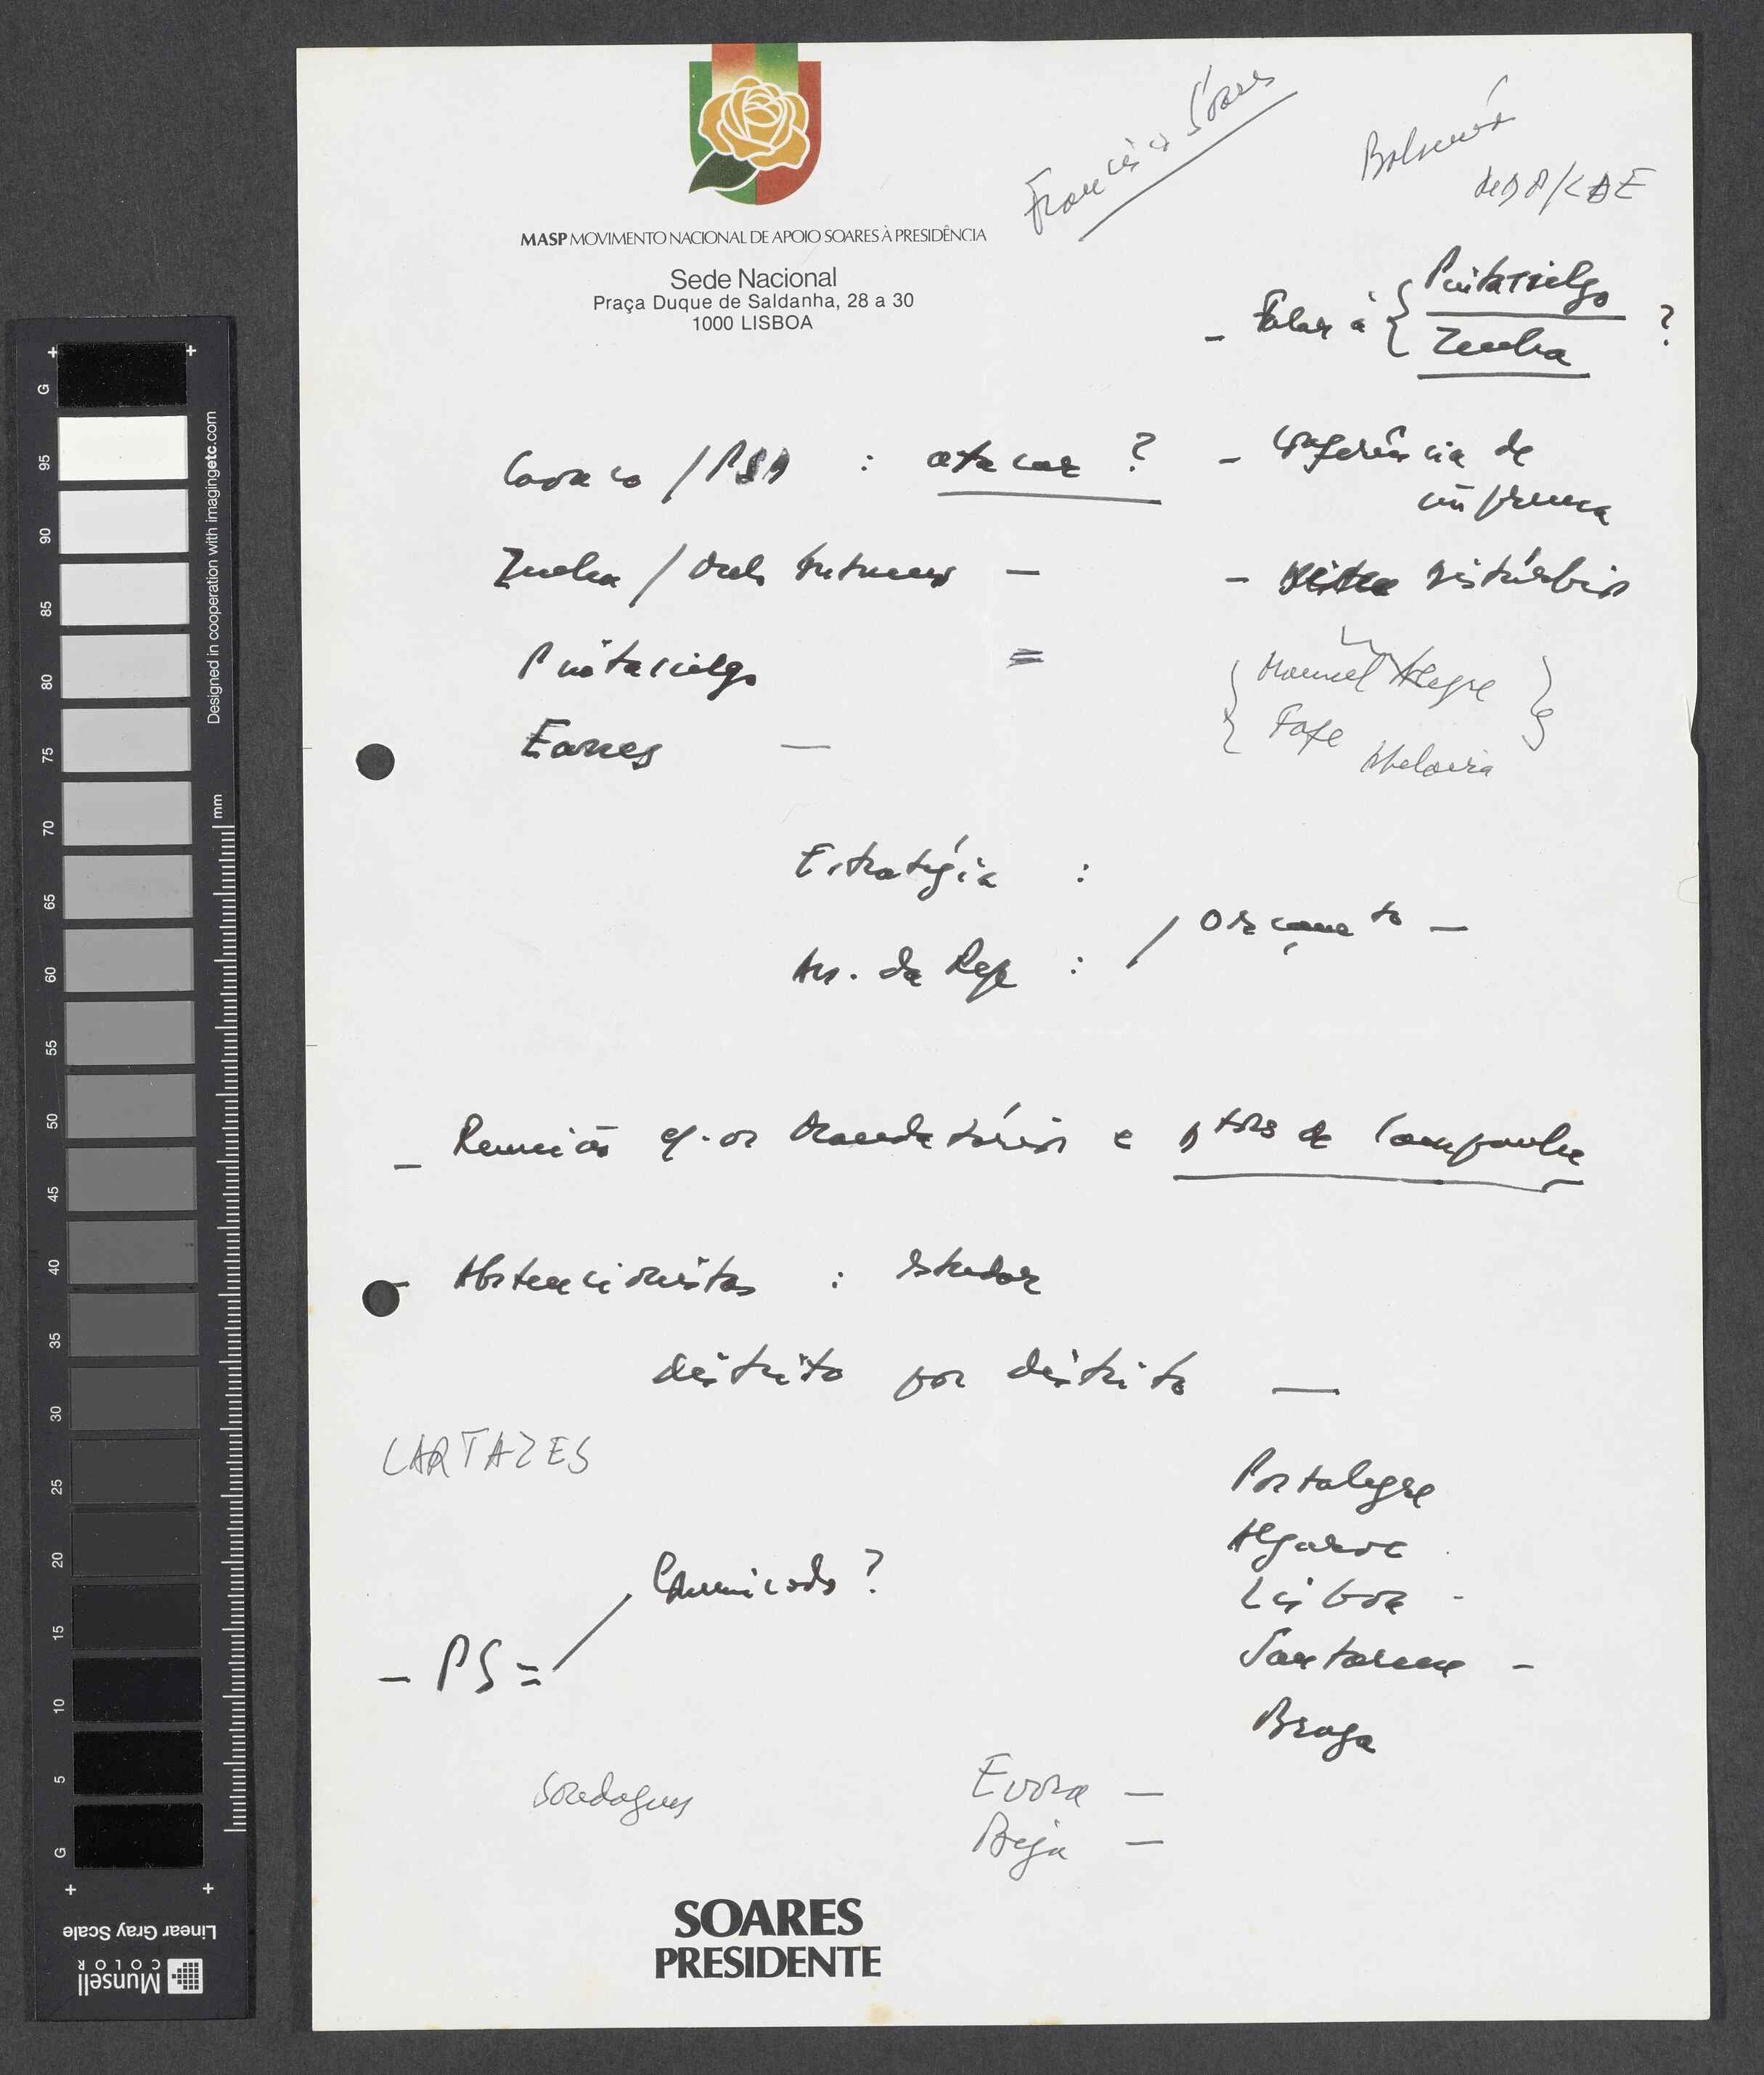 MASP MOVIMENTO NACIONAL DE APOIO SOARES À PRESIDÊNCIA
Sede Nacional
Praça Duque de Saldanha, 28 a 30
1000 LISBOA
Francisco Soares
- Falar a { Pintasilgo
Zenha ?
Cavaco / PSD : atacar ?
- Conferência de
imprensa
Zenha /
- distúrbios
Pintasilgo =
Eanes —
{ Manuel Alegre
Fafe
Abelaira }
Estratégia :
Ass. da Rep : / Orçamento —
- Reunião c/. os Mandatários e Dtores de Campanha
- Abstencionistas : estudar
distrito por distrito —
CARTAZES
Portalegre
Algarve
Lisboa -
Santarem -
Braga
Comunicado ?
- PS =
Sondagens
Evora —
Beja —
SOARES
PRESIDENTE
G
95
90
85
80
75
70
65
60
55
50
45
40
35
30
25
20
15
10
5
G
mm
Designed in cooperation with imagingetc.com
Linear Gray Scale
Munsell
COLOR